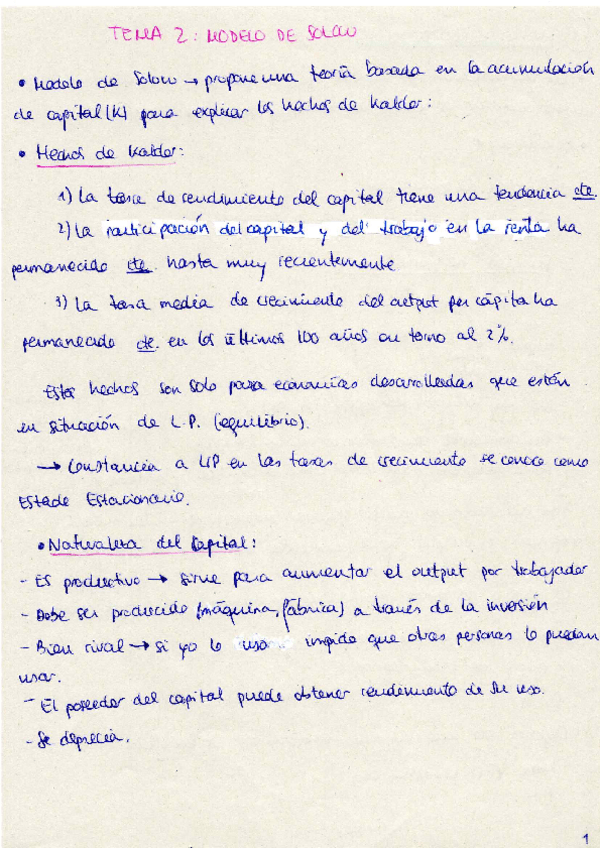 TEMA 2: MODELO DE SOLOW
• Modelo de Solow → propone una teoría basada en la acumulación
de capital (K) para explicar los hechos de Kaldor:
• Hechos de Kaldor:
1) La tasa de rendimiento del capital tiene una tendencia cte.
2) La participación del capital y del trabajo en la renta ha
permanecido cte. hasta muy recientemente
3) La tasa media de crecimiento del output per cápita ha
permanecido cte. en los últimos 100 años en torno al 2%.
Estos hechos son solo para economías desarrolladas que están
en situación de L.P. (equilibrio).
→ Constancia a LP en las tasas de crecimiento se conoce como
Estado Estacionario.
• Naturaleza del Capital:
- Es productivo → sirve para aumentar el output por trabajador
- Debe ser producido (máquina, fábrica) a través de la inversión
- Bien rival → si yo lo uso impido que otras personas lo puedan
usar.
- El poseedor del capital puede obtener rendimiento de su uso.
- Se deprecia.
1